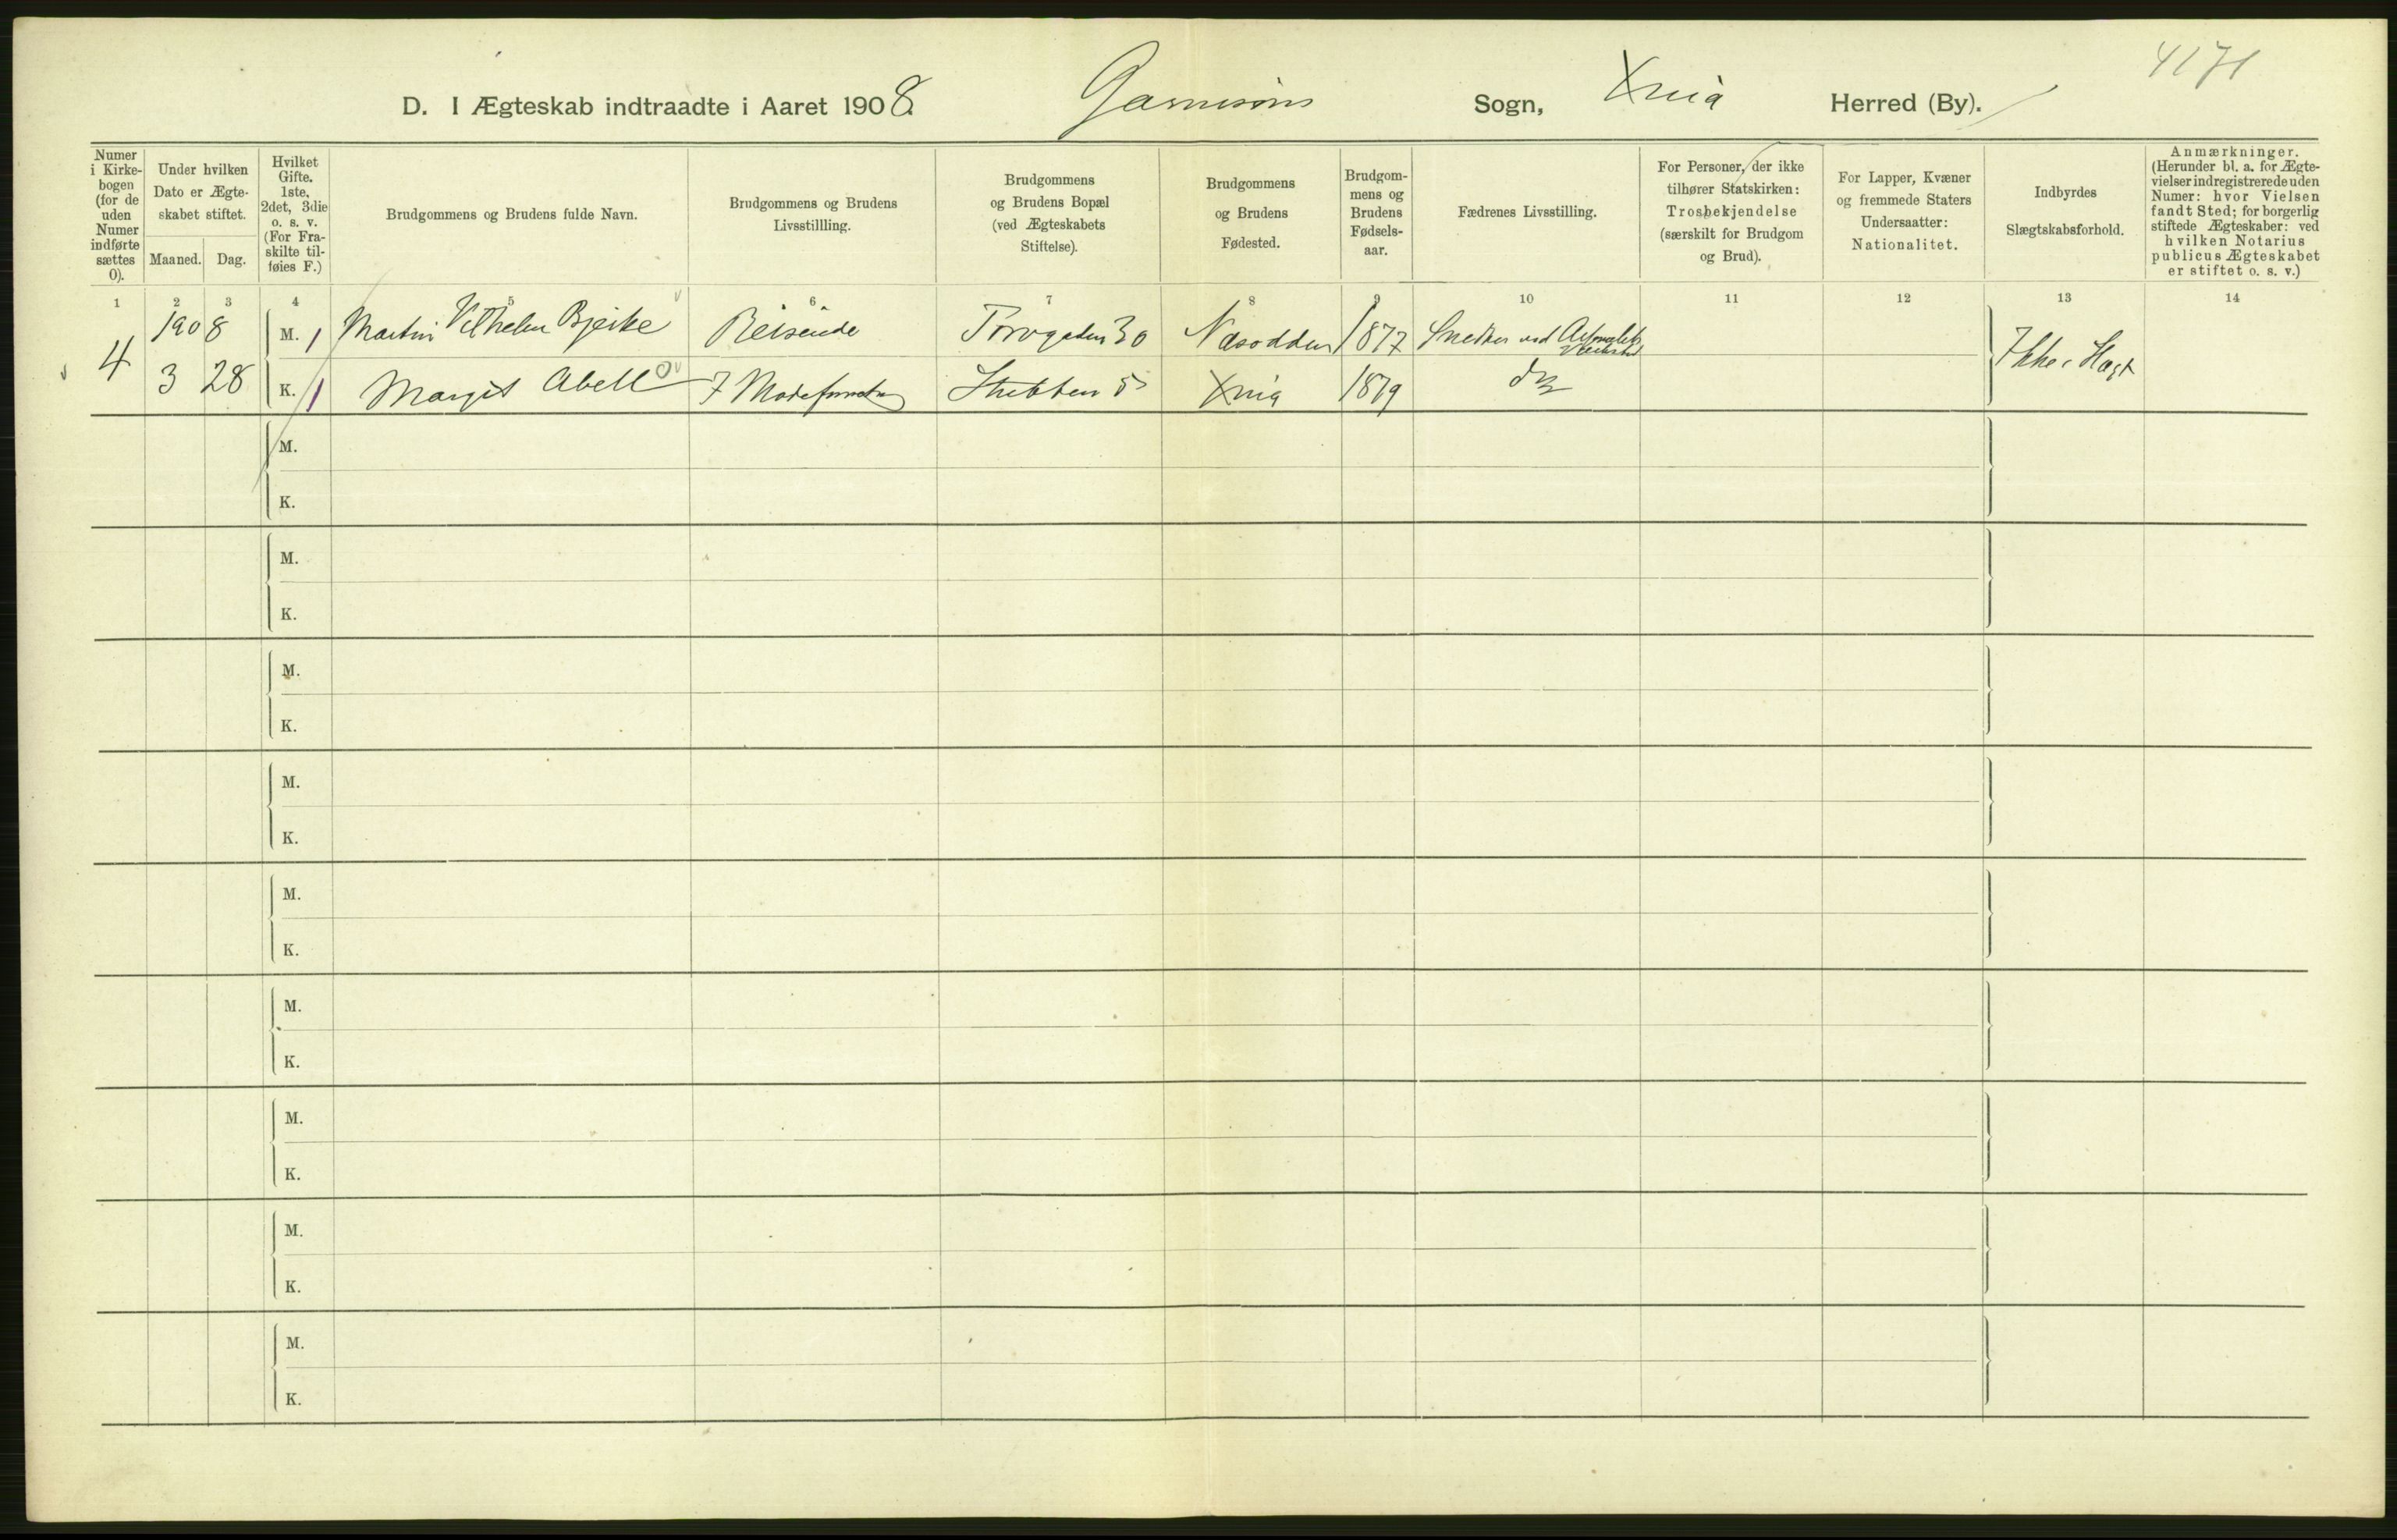 4171
D. I Ægteskab indtraadte i Aaret 1908. Garnisons Sogn, Xnia Herred (By).
Numer i Kirke- bogen (for de uden Numer indførte sættes 0).
Under hvilken Dato er Ægte- skabet stiftet.
Maaned. Dag.
Hvilket Gifte. 1ste, 2det, 3die o. s. v. (For Fra- skilte til- føies F.)
Brudgommens og Brudens fulde Navn.
Brudgommens og Brudens Livsstillling.
Brudgommens og Brudens Bopæl (ved Ægteskabets Stiftelse).
Brudgommens og Brudens Fødested.
Brudgom- mens og Brudens Fødsels- aar.
Fædrenes Livsstilling.
For Personer, der ikke tilhører Statskirken: Trosbekjendelse (særskilt for Brudgom og Brud).
For Lapper, Kvæner og fremmede Staters Undersaatter: Nationalitet.
Indbyrdes Slægtskabsforhold.
Anmærkninger. (Herunder bl. a. for Ægte- vielser indregistrerede uden Numer: hvor Vielsen fandt Sted; for borgerlig stiftede Ægteskaber: ved hvilken Notarius publicus Ægteskabet er stiftet o. s. v.)
1 2 3 4 5 6 7 8 9 10 11 12 13 14
1908 M. 1 Martin Vilhelm Bjerke Reisende Torvgaden 30 Næsodden 1877 Snedker ved
4 3 28 K. 1 Margit Abell Xnia 1879 Ikke
M.
K.
M.
K.
M.
K.
M.
K.
M.
K.
M.
K.
M.
K.
M.
K.
M.
K.